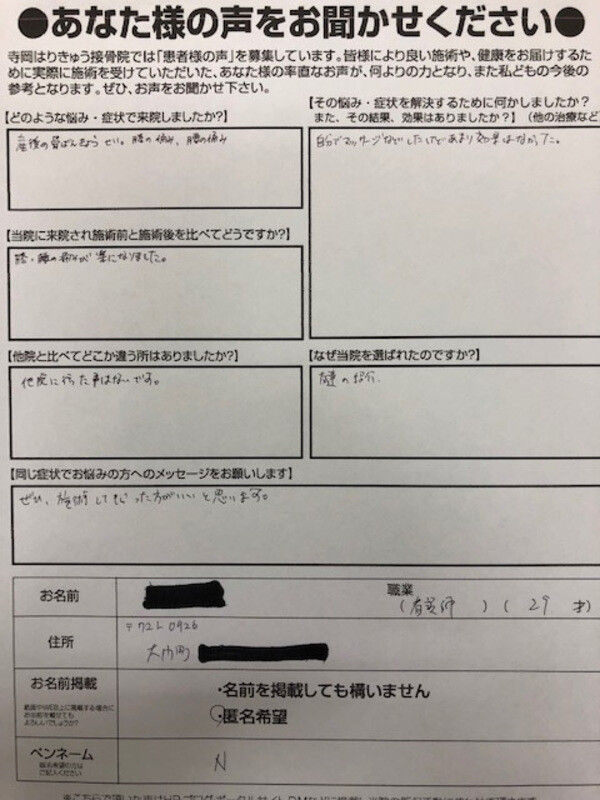 ●あなた様の声をお聞かせください●
寺岡はりきゅう接骨院では「患者様の声」を募集しています。皆様により良い施術や、健康をお届けするた
めに実際に施術を受けていただいた、あなた様の率直なお声が、何よりの力となり、また私どもの今後の
参考となります。ぜひ、お声をお聞かせ下さい。
【どのような悩み・症状で来院しましたか?】
産後の骨ばんきょうせい。腰の痛み、膝の痛み
【その悩み・症状を解決するために何かしましたか?
また、その結果、効果はありましたか?】(他の治療など
自分でマッサージなどしたけどあまり効果はなかった。
【当院に来院され施術前と施術後を比べてどうですか?】
膝・腰の痛みが楽になりました。
【他院と比べてどこか違う所はありましたか?】
他院に行った事はないです。
【なぜ当院を選ばれたのですか?】
友達の紹介.
【同じ症状でお悩みの方へのメッセージをお願いします】
ぜひ、施術してもらった方がいいと思います。
お名前
職業
( ) ( 29 才)
住所
〒721 0926
大門町
お名前掲載
紙面やWEB上に掲載する場合に
お名前を載せても
よろしいでしょうか?
・名前を掲載しても構いません
・匿名希望
ペンネーム
匿名希望の方は
ご記入ください
N